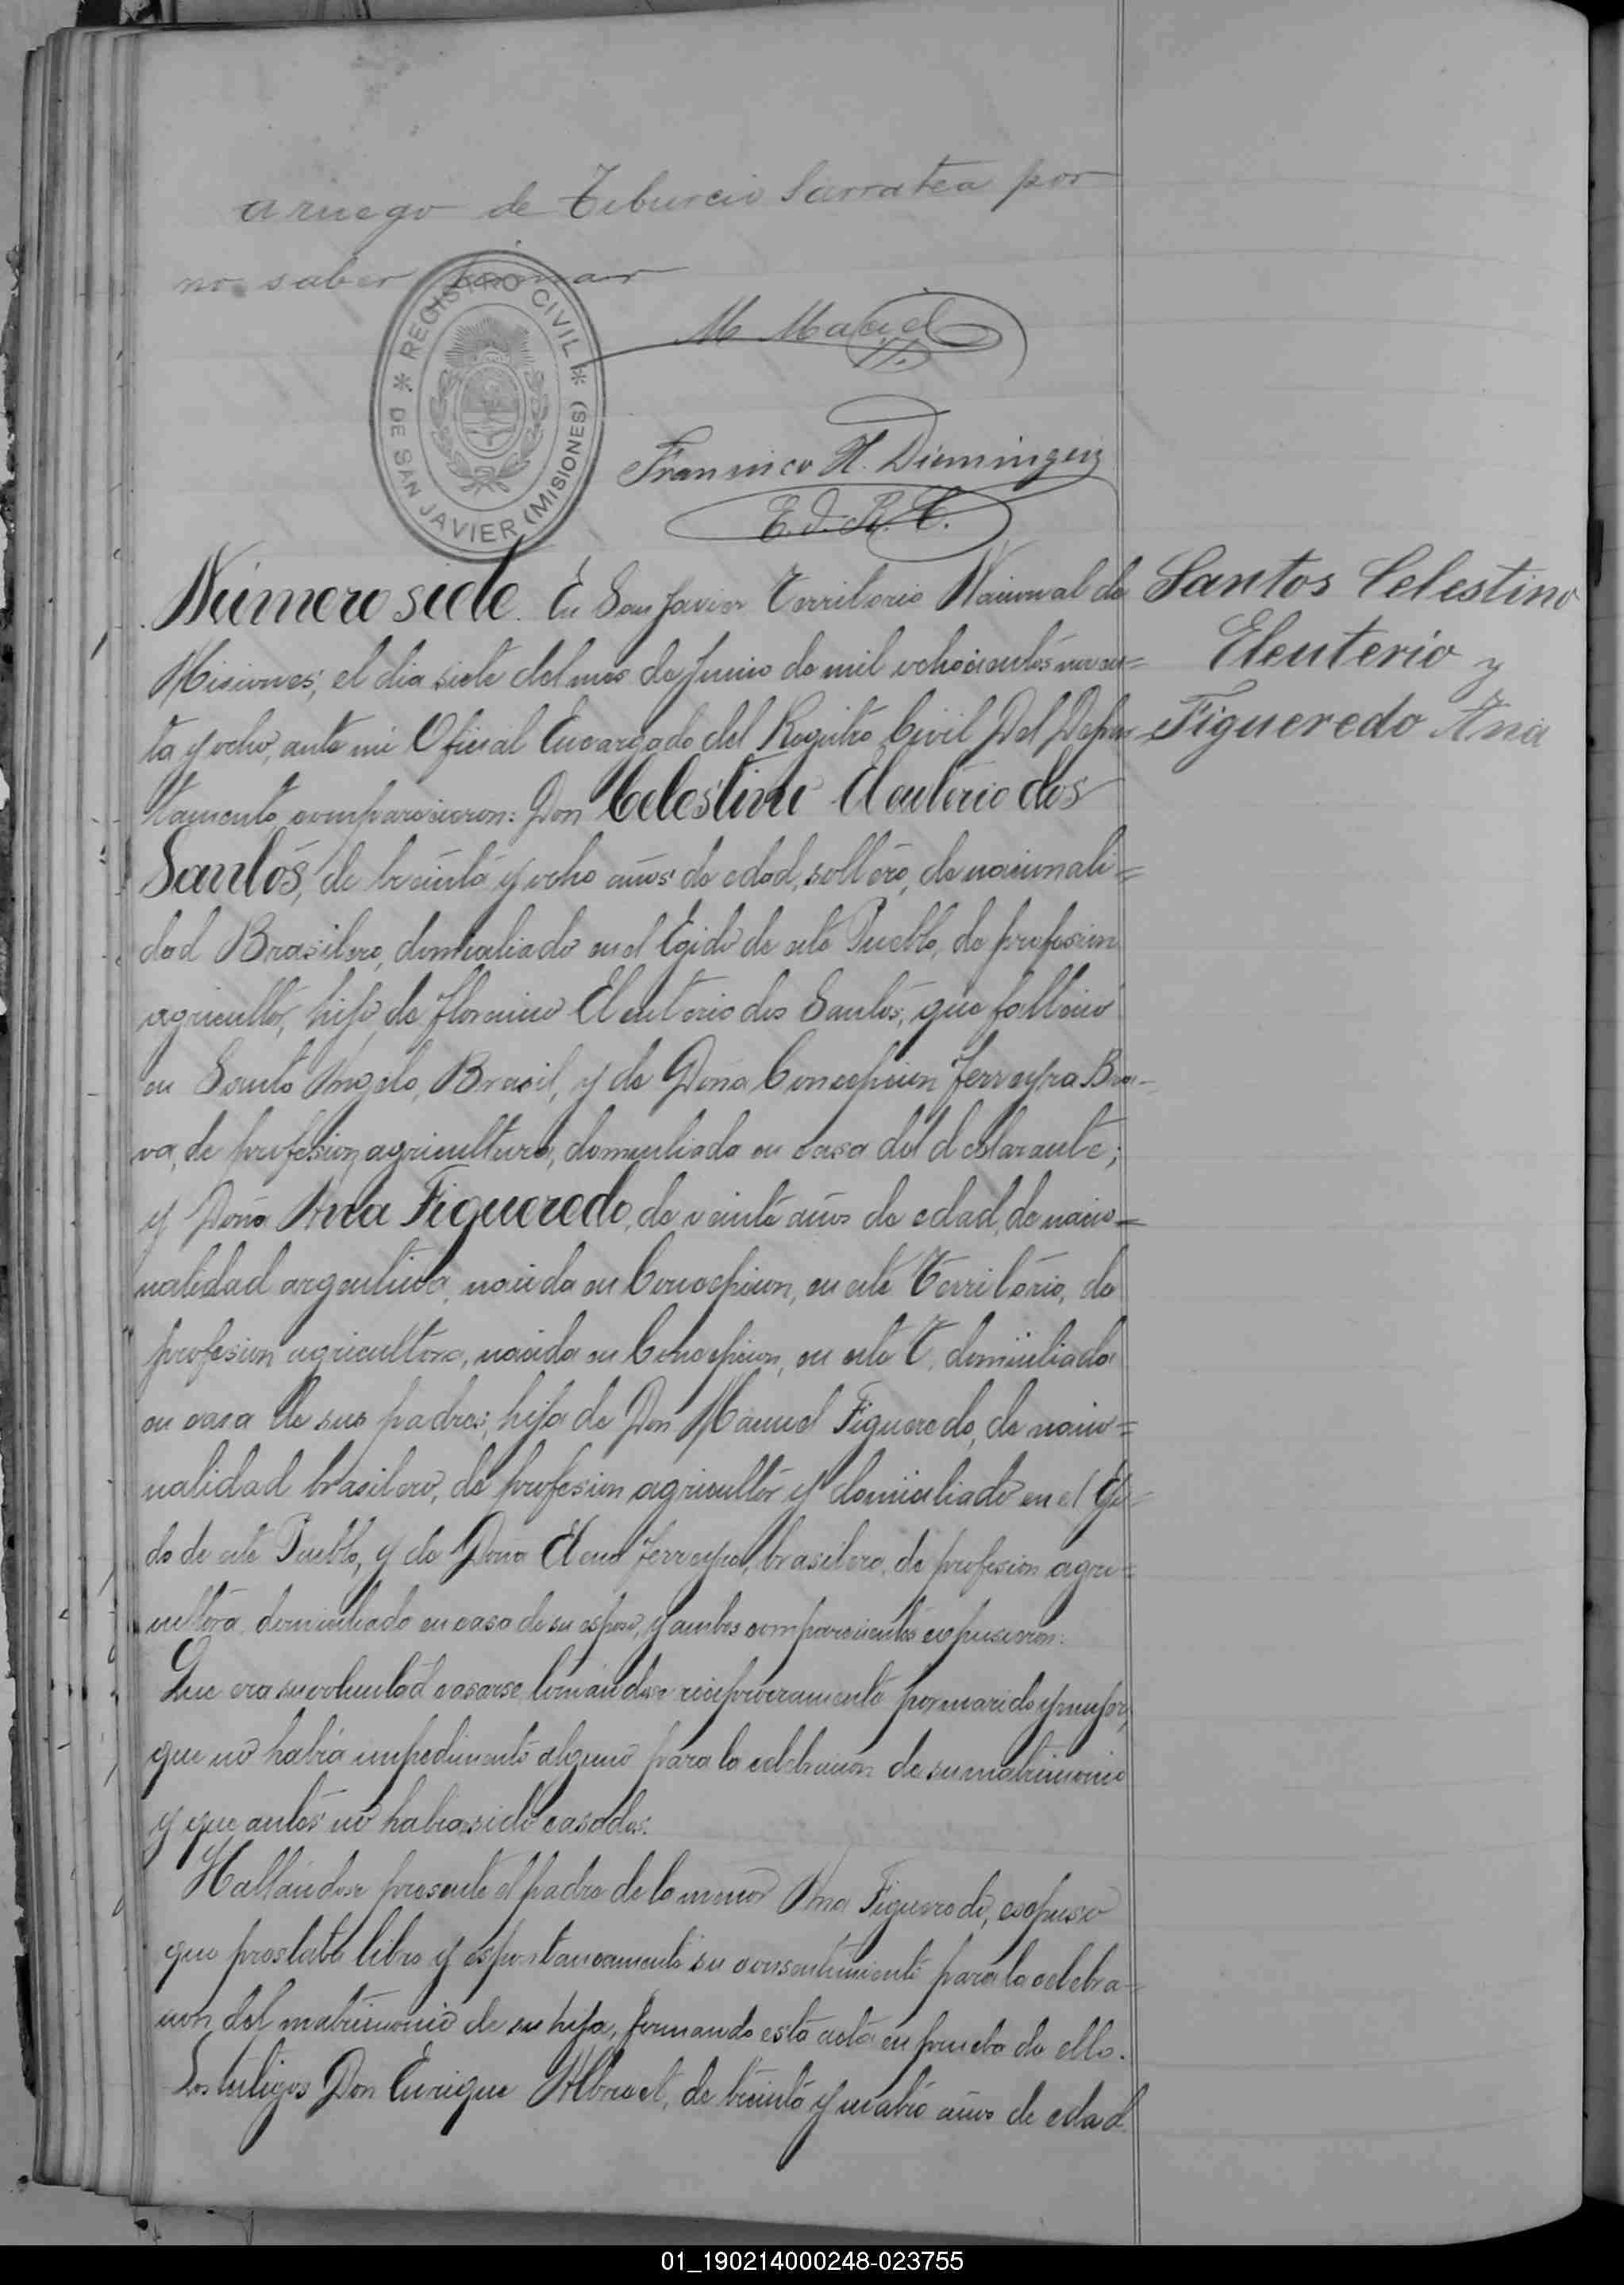 a ruego de Tiburcio Sarratea por
no saber firmar
REGISTRO CIVIL
DE SAN JAVIER (MISIONES)
M Maciel
Francisco H. Dieminger
E. d. R. C.
Santos Celestino
Eleuterio y
Figueredo Ana
Número siete. En San Javier Territorio Nacional de
Misiones, el dia siete del mes de Junio de mil ochocientos noven=
ta y ocho, ante mi Oficial Encargado del Registro Civil Del Depar
tamento comparecieron: Don Celestino Eleuterio dos
Santos, de treinta y ocho años de edad, soltero, de nacionali=
dad Brasilero, domiciliado en el Egido de este Pueblo, de profesion
agricultor, hijo de Florenino Eleuterio dos Santos, que falleció
en Santo Angelo, Brasil, y de Doña Concepcion Ferreyra
de profesion agricultura, domiciliada en casa del declarante;
y Doña Ana Figueredo, de veinte años de edad, de nacio=
nalidad argentina, nacida en Concepcion, en este Territorio, de
profesion agricultora, nacida en Concepcion, en este T. domiciliada
en casa de sus padres; hija de Don Manuel Figueredo, de nacio=
nalidad brasilero, de profesion agricultor y domiciliado en el Egi-
do de este Pueblo, y de Dona Elena Ferreyra, brasilera, de profesion agri=
cultora domiciliada en casa de su esposo, y ambos comparecientes expusieron:
Que era su voluntad casarse tomandose reciprocamente por marido y mujer,
que no habia impedimento alguno para la celebracion de su matrimonio
y que antes no habia sido casados.
Hallandose presente el padre de la menor Ana Figueredo, expuso
que prestaba libre y espontaneamente su consentimiento para la celebra=
cion del matrimonio de su hija, firmando esta acta en prueba de ello.
Los testigos Don Enrique Albrecht, de treinta y cuatro años de edad
01_190214000248-023755